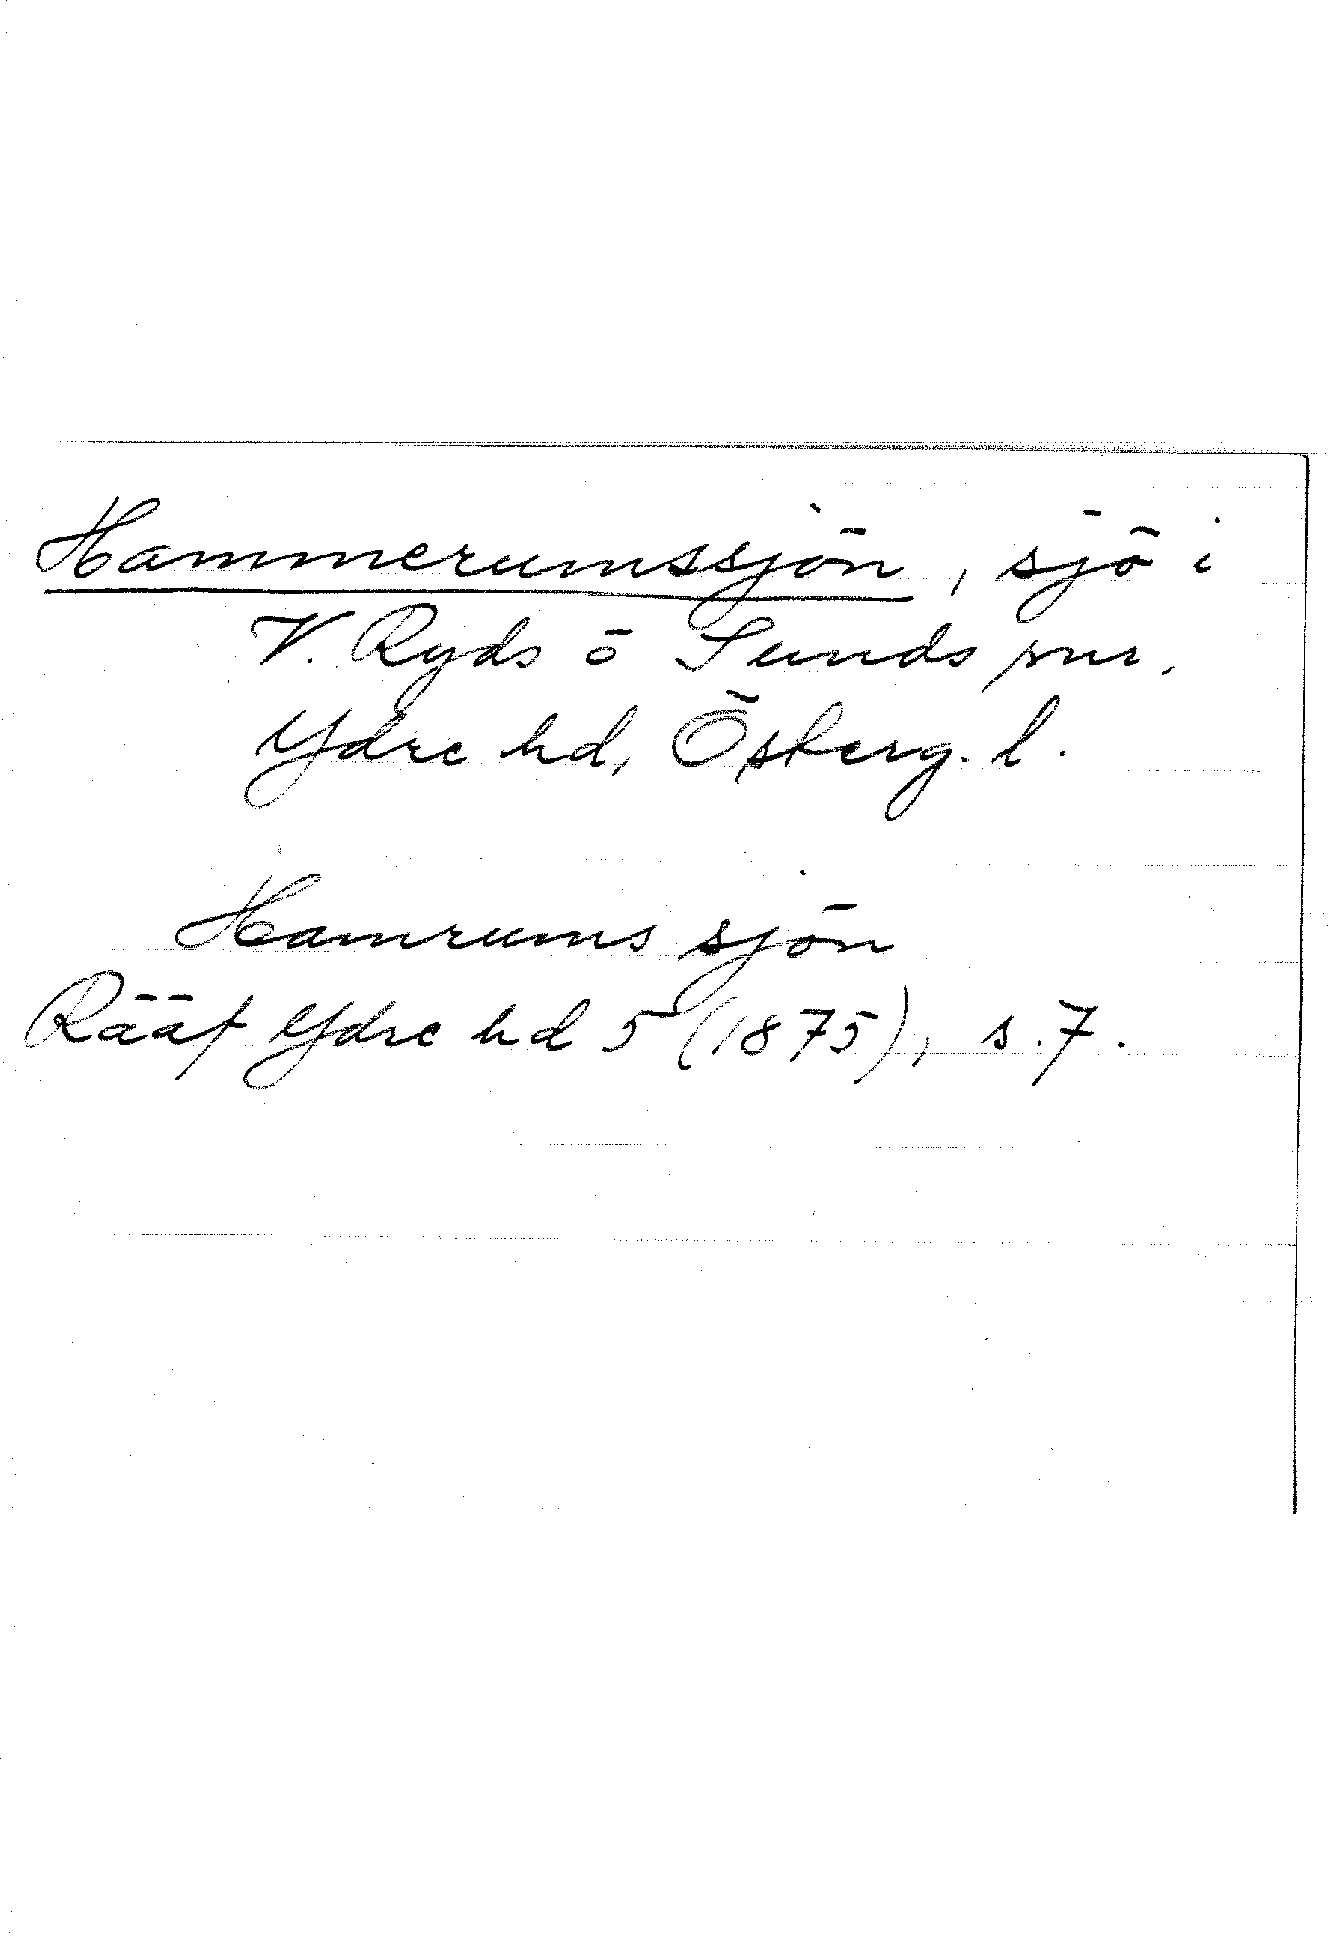 Hammerumssjön, sjö i
V. Ryds o Sunds snr.
Ydre hd, Österg. l.
Hamrums sjön
Rääf Ydre hd 5 (1875), s. 7.